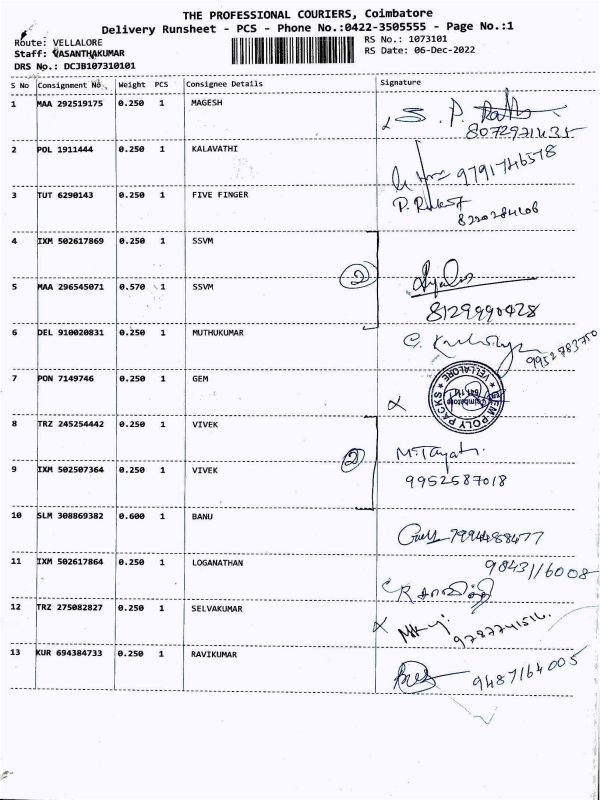 THE PROFESSIONAL COURIERS, Coimbatore
Delivery Runsheet - PCS - Phone No.:0422-3505555 - Page No.:1
Route: VELLALORE
RS No.: 1073101
Staff: VASANTHAKUMAR
RS Date: 06-Dec-2022
DRS No.: DCJB107310101
S No Consignment No Weight PCS Consignee Details Signature
1 MAA 292519175 0.250 1 MAGESH
S. P.
2 POL 1911444 0.250 1 KALAVATHI
9791746578
3 TUT 6290143 0.250 1 FIVE FINGER
P.
4 IXM 502617869 0.250 1 SSVM
2
5 MAA 296545071 0.570 1 SSVM
8129990428
6 DEL 910020831 0.250 1 MUTHUKUMAR
9952783750
7 PON 7149746 0.250 1 GEM
GEM POLY PACKS VELLALORE
8 TRZ 245254442 0.250 1 VIVEK
9 IXM 502507364 0.250 1 VIVEK
2
9952587018
10 SLM 308869382 0.600 1 BANU
7994488477
11 IXM 502617864 0.250 1 LOGANATHAN
9843116008
12 TRZ 275082827 0.250 1 SELVAKUMAR
13 KUR 694384733 0.250 1 RAVIKUMAR
9487164005